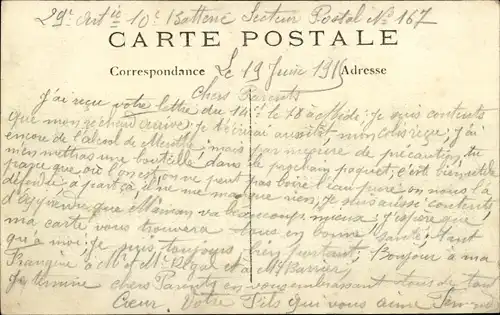 29e Artie 10e Batterie Secteur Postal No 167
CARTE POSTALE
Correspondance Le 19 Juin 1915 Adresse
Chers Parents
J'ai reçu votre lettre du 14 et le 18 à Midi; Je suis contents
que mon je l'écrirai aussitôt, mon colis reçu, j'ai
encore de l'alcool de Menthe; mais par mesure de précaution, tu
m'en mettras une bouteille dans le prochain paquet; c'est bien utile
parce que, où l'on est, on ne peut pas boire l'eau pure on nous l'a
défendu; à part ça, il ne me manque rien, je suis aussi contents
d'apprendre que Maman va beaucoup mieux; j'espère que
ma carte vous trouvera tous en bonne santé; tant
qu'à moi, je suis toujours bien portant; Bonjour à ma
à Mr et Me et à Me Barrier
Je termine chers Parents en vous embrassant tous de tout
Cœur. Votre Fils qui vous aime